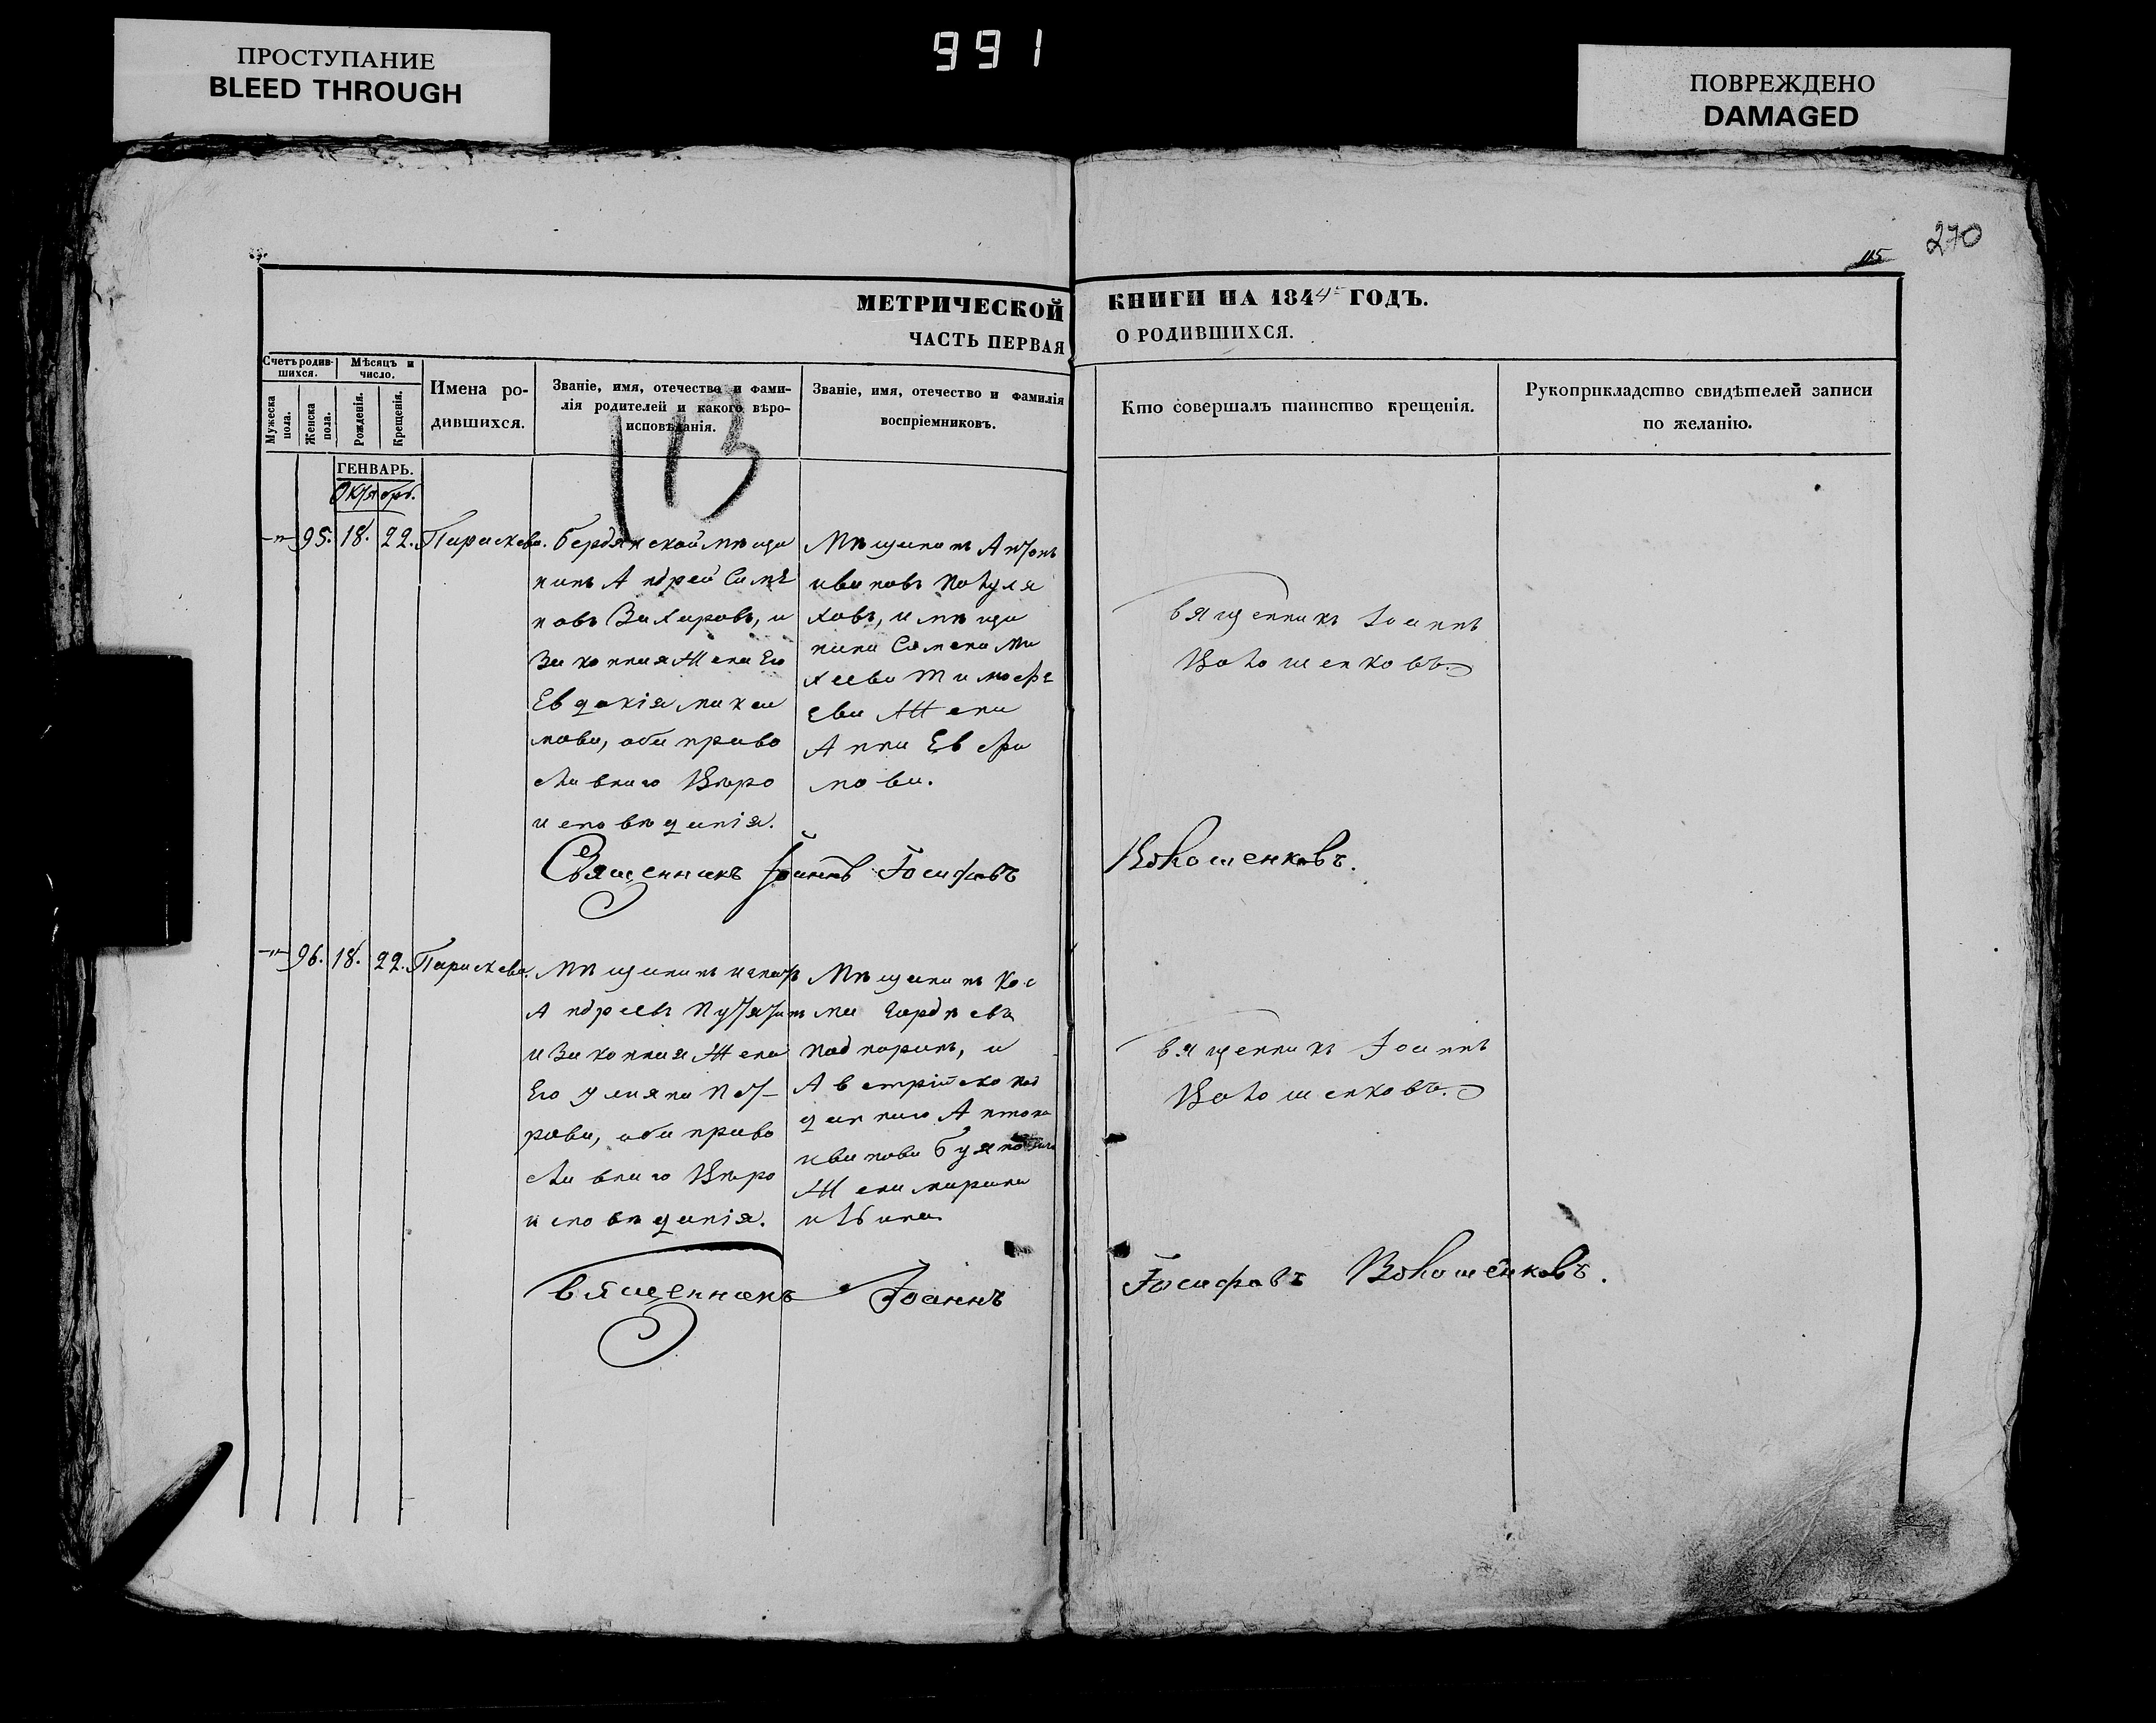 ПРОСТУПАНИЕ
BLEED THROUGH
991
ПОВРЕЖДЕНО
DAMAGED
270
115
МЕТРИЧЕСКОЙ КНИГИ НА 1844 ГОДЪ.
ЧАСТЬ ПЕРВАЯ О РОДИВШИХСЯ.
Счетъ родив-
шихся.
Мужеска
пола.
Женска
пола.
Мѣсяцъ и
число.
Рожденія.
Крещенія.
Имена ро-
дившихся.
Званіе, имя, отечество и фами-
лія родителей и какого вѣро-
исповѣданія.
Званіе, имя, отечество и фамилія
воспріемниковъ.
Кто совершалъ таинство крещенія.
Рукоприкладство свидѣтелей записи
по желанію.
113
ГЕНВАРЬ.
Октябрь.
95. 18. 22. Параскева.
Бердянской мѣща
нинъ Андрей Симе
новъ Захаровъ, и
Законная Жена Его
Евдокія
мова, оба право
славнаго Вѣро
исповѣданія.
Мѣщанинъ Антонъ
Ивановъ
ковъ, и мѣща
нина Семена Ми
хеева Тимофе
ева Жена
Анна Ев
мова.
Священникъ Іоаннъ
Волошенковъ.
Священникъ Іоаннъ Іосифовъ Волошенковъ.
96. 18. 22. Параскева.
Мѣщанинъ
Андреевъ
и Законная Жена
Его Ульяна Пет-
рова, оба право
славнаго Вѣро
исповѣданія.
Мѣщанинъ Кос
ма Гордѣевъ
и
Австрійско под
даннаго Антона
Иванова
Жена Марина
Священникъ Іоаннъ
Волошенковъ.
Священникъ Іоаннъ Іосифовъ Волошенковъ.